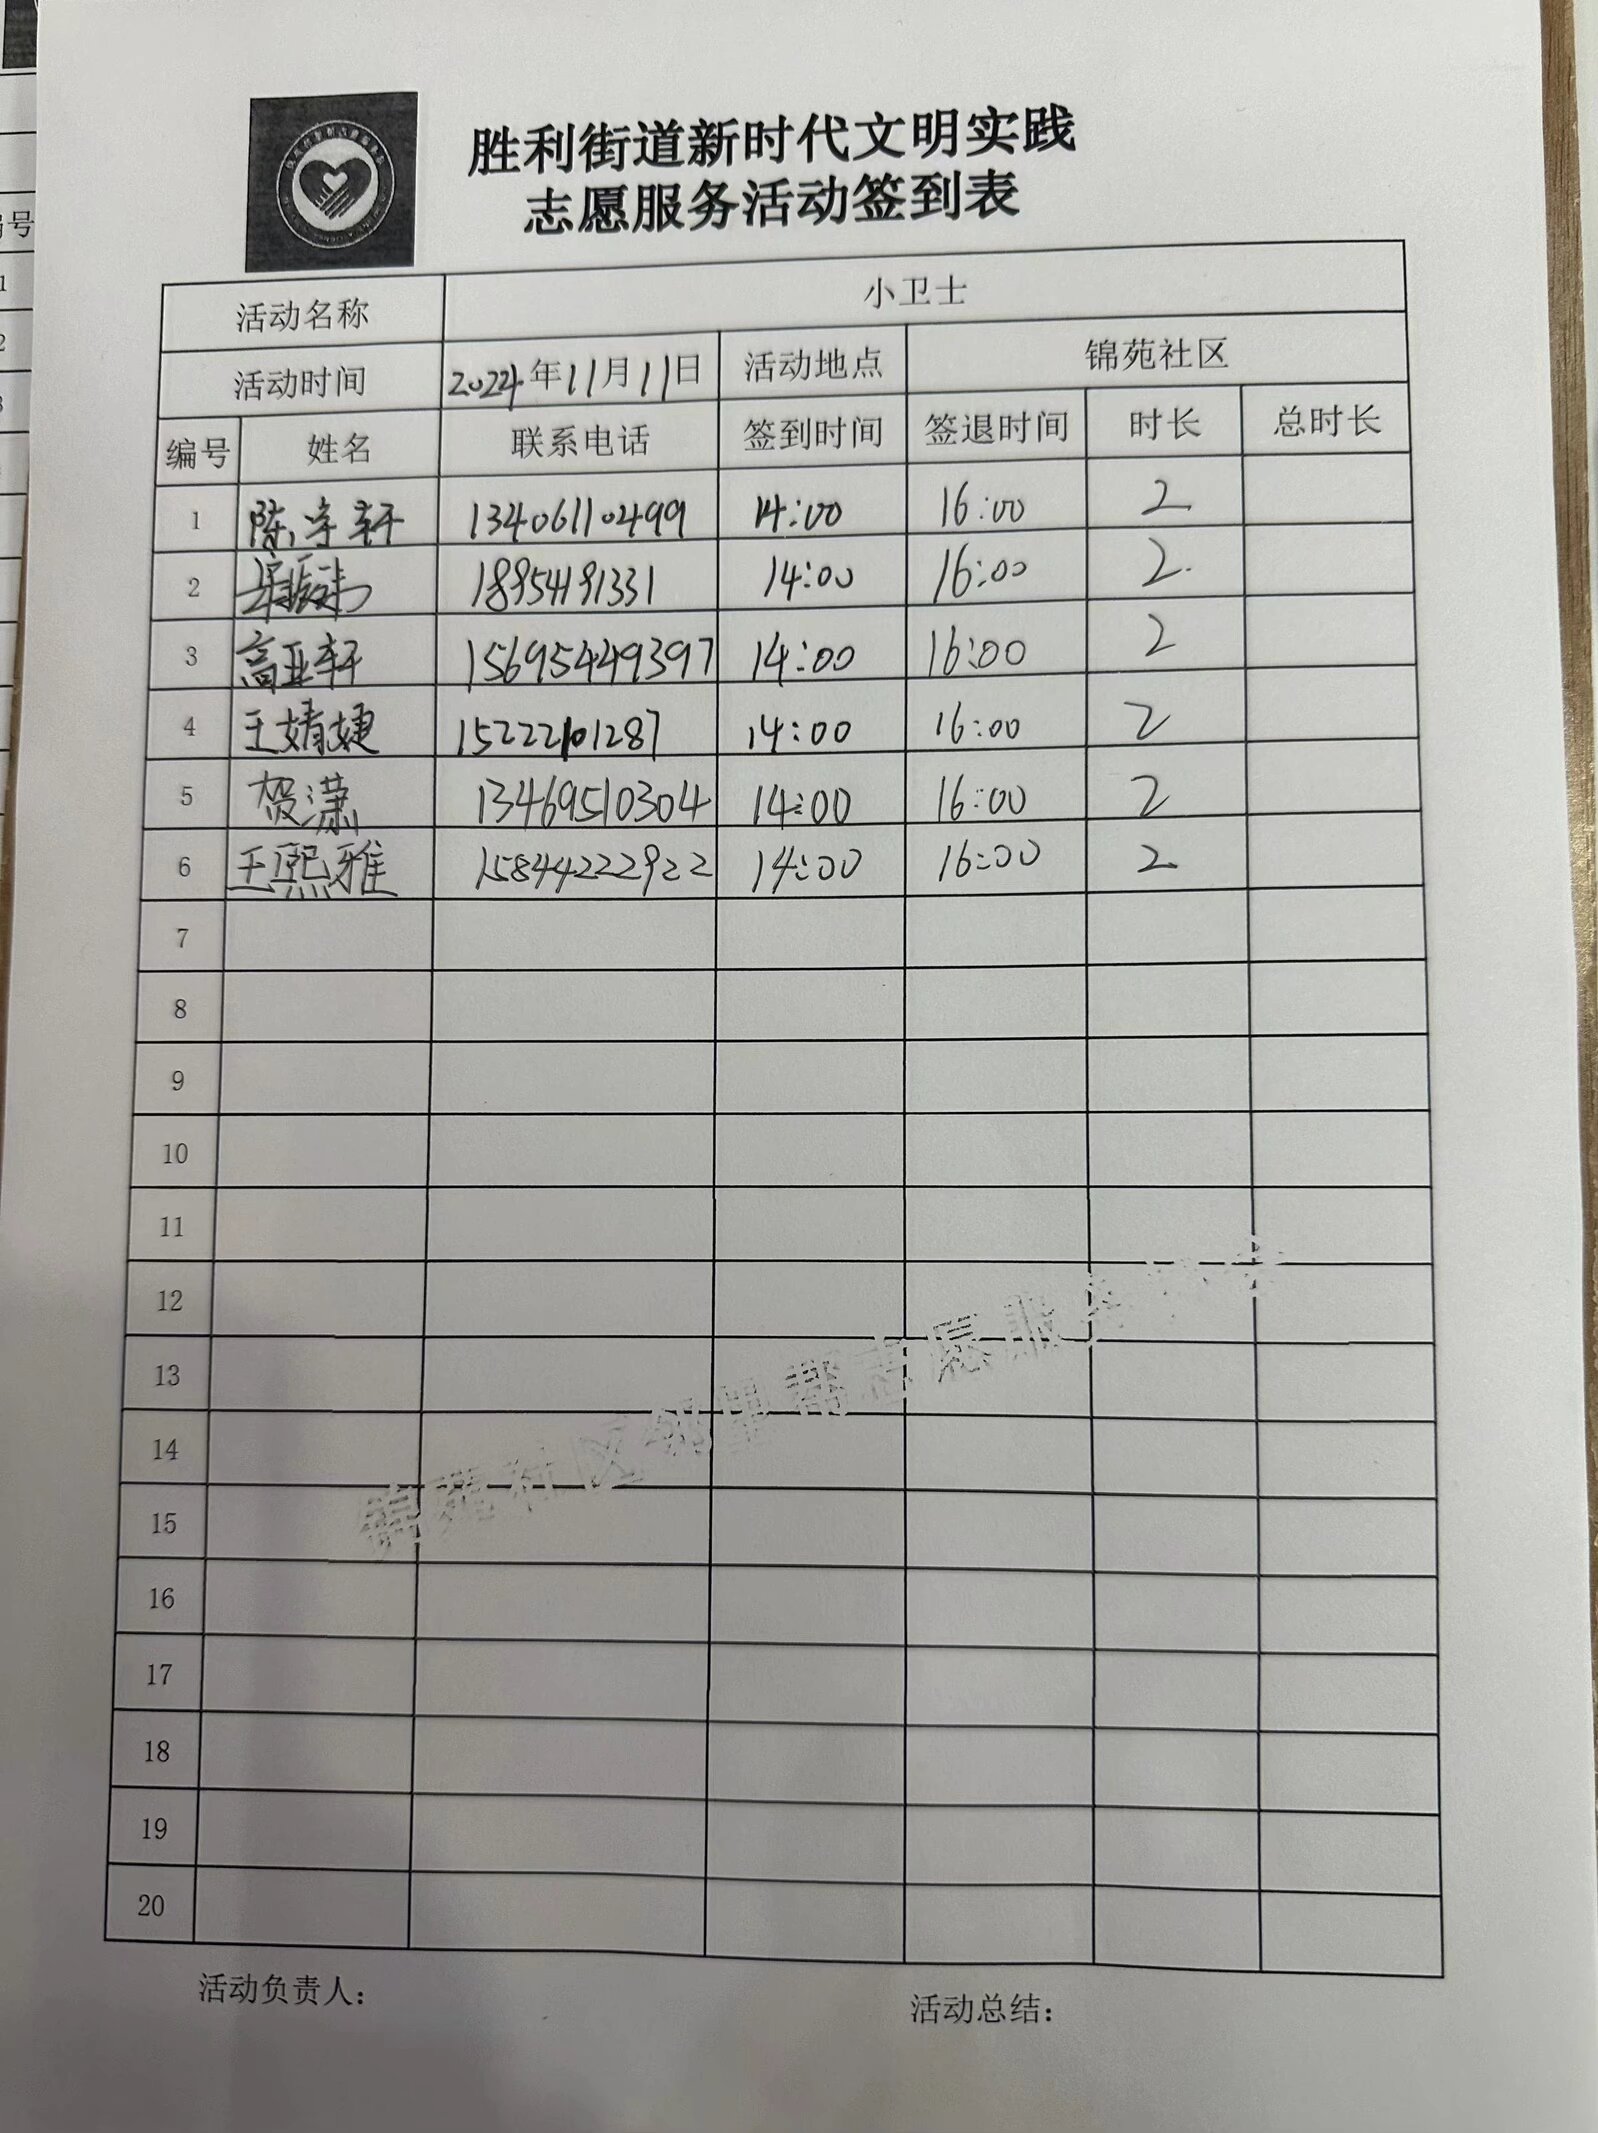 胜利街道新时代文明实践
志愿服务活动签到表
活动名称 小卫士
活动时间 2024年11月11日 活动地点 锦苑社区
编号 姓名 联系电话 签到时间 签退时间 时长 总时长
1 陈宇轩 13406110499 14:00 16:00 2
2 18954191331 14:00 16:00 2
3 高亚轩 15695449397 14:00 16:00 2
4 王婧婕 15222101287 14:00 16:00 2
5 贺潇 13469510304 14:00 16:00 2
6 王熙雅 15844222922 14:00 16:00 2
7
8
9
10
11
12
13
14
15
16
17
18
19
20
锦苑社区邻里帮志愿服务
活动负责人：
活动总结：